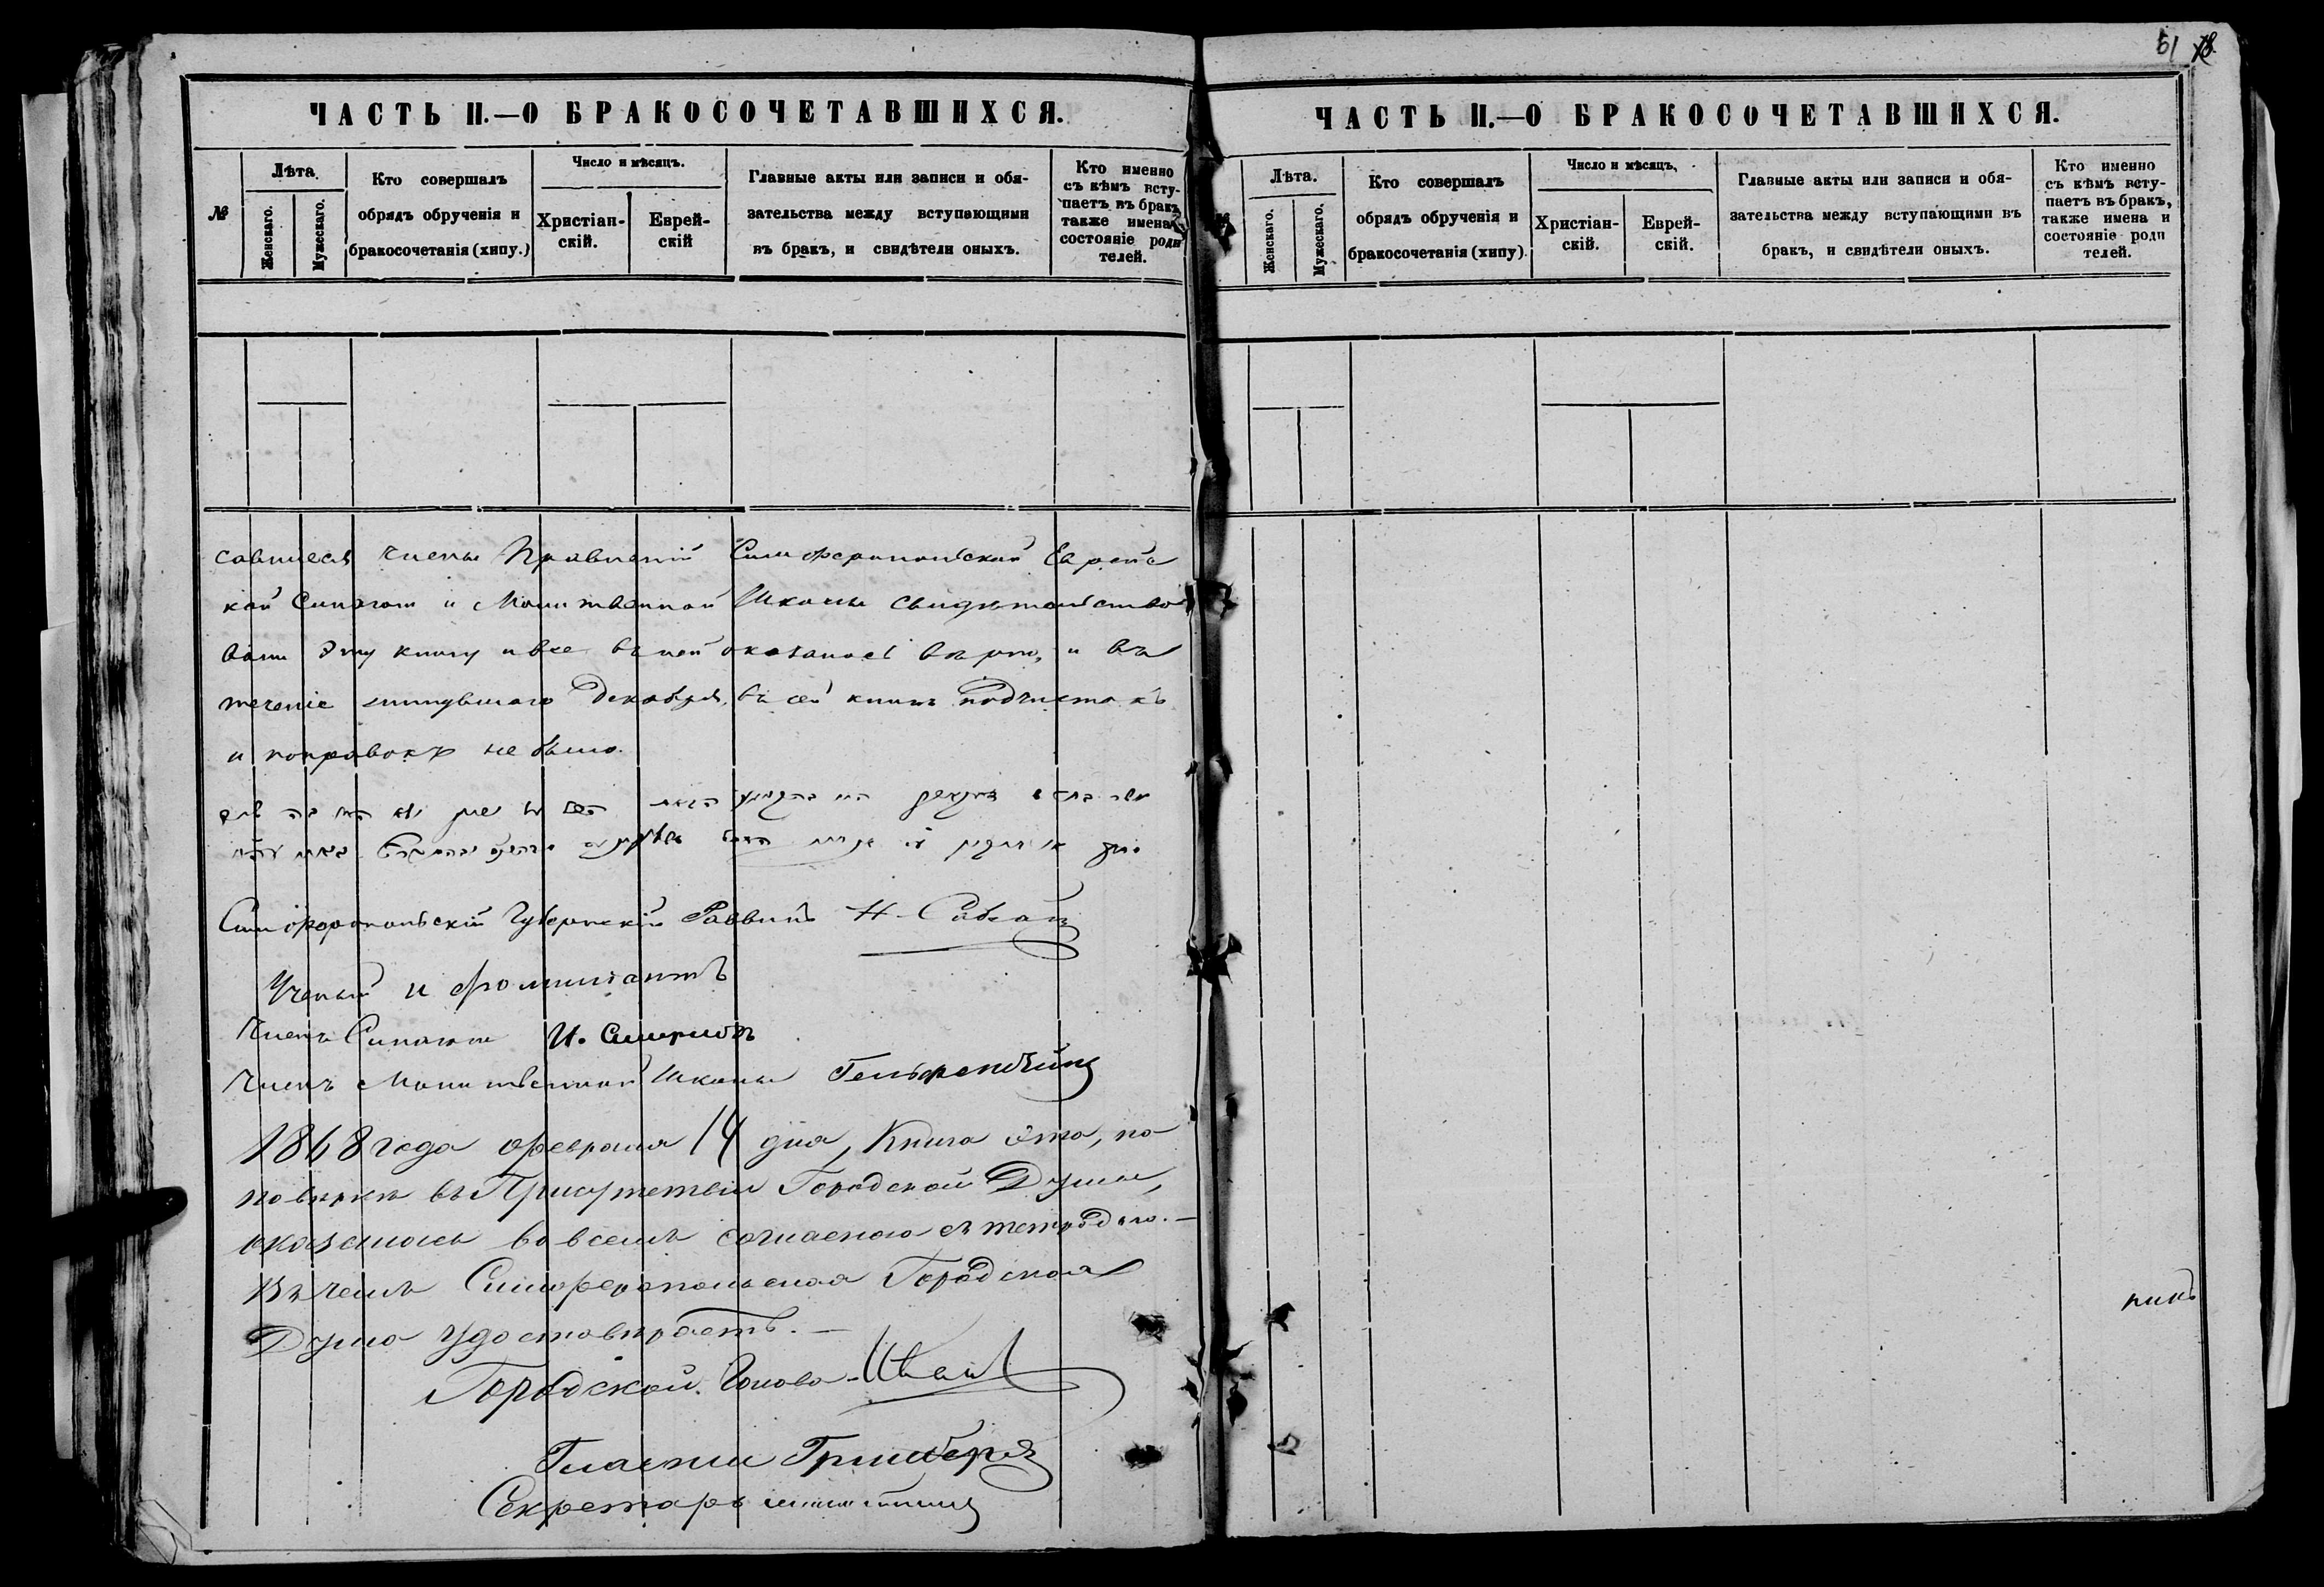 51
ЧАСТЬ II.—О БРАКОСОЧЕТАВШИХСЯ.
№
Лѣта.
Женскаго.
Мужескаго.
Кто совершалъ
обрядъ обрученія и
бракосочетанія (хипу.)
Число и мѣсяцъ.
Христіан-
скій.
Еврей-
скій
Главные акты или записи и обя-
зательства между вступающими
въ бракъ, и свидѣтели оныхъ.
Кто именно
съ кѣмъ всту-
паетъ въ бракъ
также имена
состояніе роди
телей.
савшіеся Члены Правленій Симферопольской Еврейс
кой Синагоги и Молитвенной Школы свидѣтельство
вали эту книгу и все въ ней оказалось вѣрно, и въ
теченіе минувшаго Декабря, въ сей книгѣ подчистокъ
и поправокъ не было.
Симферопольскій Губернскій Раввинъ
Ученый
Членъ Синагоги И.
Членъ Молитвенной Школы
1868 года февраля 14 дня, Книга эта, по
повѣркѣ въ Присутствіи Городской Думы,
оказалась во всемъ согласною съ тетрадью.—
Въ чемъ Симферопольская Городская
Дума удостовѣряетъ.—
Городской Голова
Гласный Гринбергъ
Секретарь
ЧАСТЬ II.—О БРАКОСОЧЕТАВШИХСЯ.
Лѣта.
Женскаго.
Мужескаго.
Кто совершалъ
обрядъ обрученія и
бракосочетанія (хипу)
Число и мѣсяцъ,
Христіан-
скій.
Еврей-
скій.
Главные акты или записи и обя-
зательства между вступающими въ
бракъ, и свидѣтели оныхъ.
Кто именно
съ кѣмъ всту-
паетъ въ бракъ,
также имена и
состояніе роди
телей.